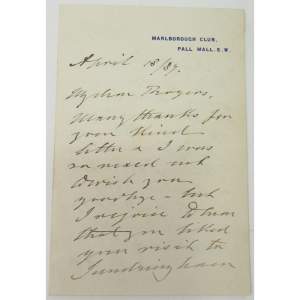 MARLBOROUGH CLUB,
PALL MALL. S.W.
April 18/89.
My dear Rogers,
Many thanks for
your kind
letter & I was
so vexed not
to wish you
goodbye - but
I rejoice to hear
that you liked
your visit to
Sandringham